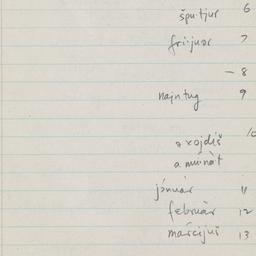 špu·tjur 6
fri·juor 7
– 8
najntug 9
10
a xojdiš
a mu·nàt
jánuàr 11
februàr 12
màrcijuš 13